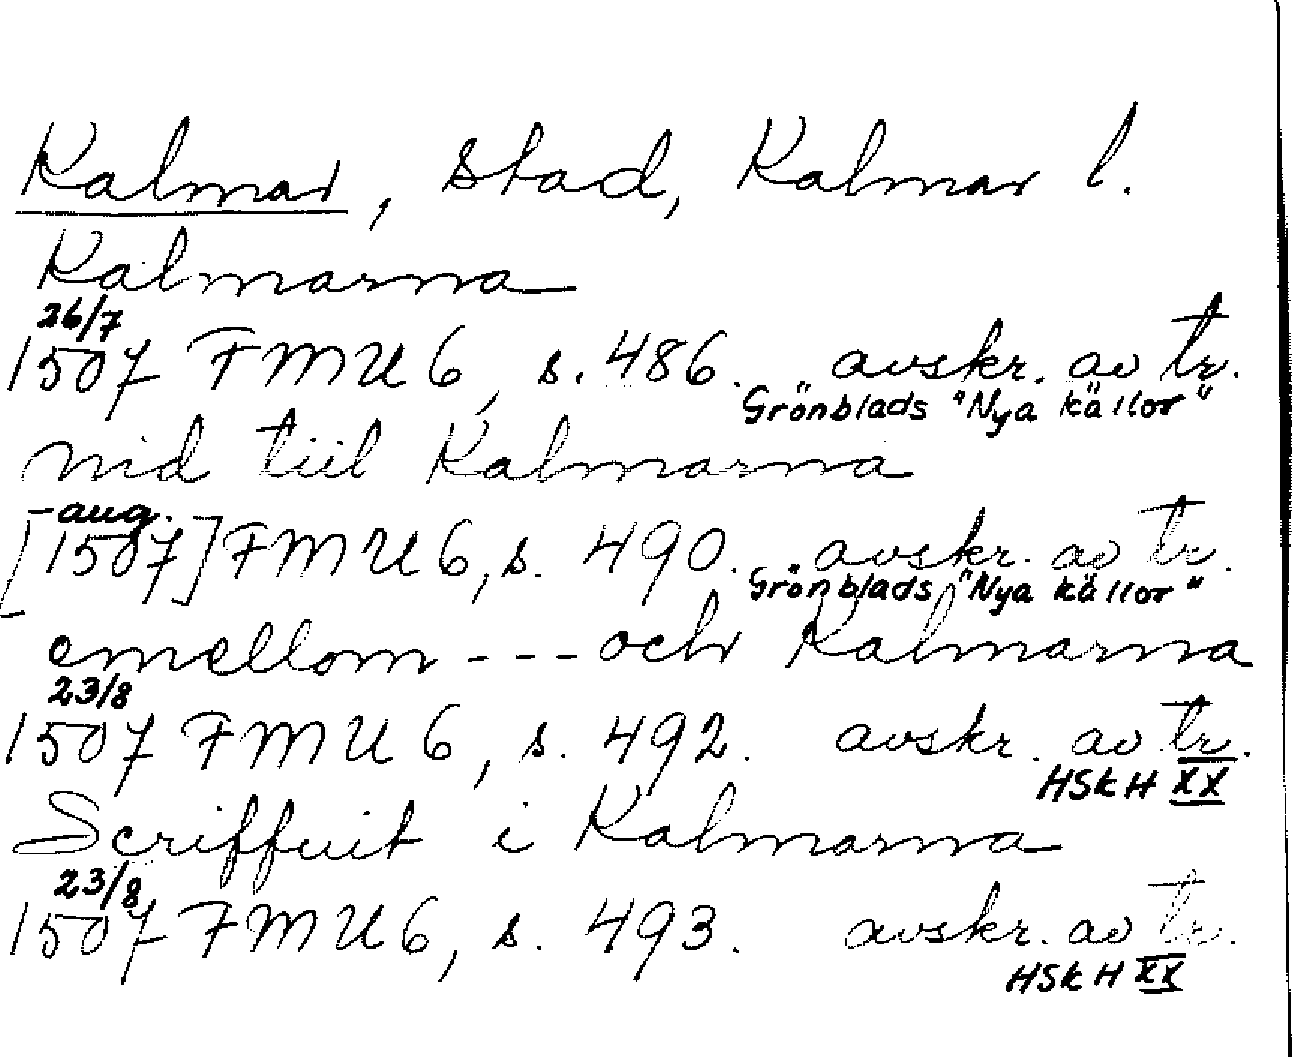 Kalmar, stad, Kalmar l.
Kalmarna
26/7
1507 FMU 6, s. 486. avskr. av tr.
Grönblads "Nya källor"
nid tiil Kalmarna
- aug.
[1507] FMU 6, s. 490. avskr. av tr.
Grönblads "Nya källor"
emellom --- och Kalmarna
23/8
1507 FMU 6, s. 492. avskr. av tr.
HSkH XX
Scriffuit i Kalmarna
23/8
1507 FMU 6, s. 493. avskr. av tr.
HSkH XX